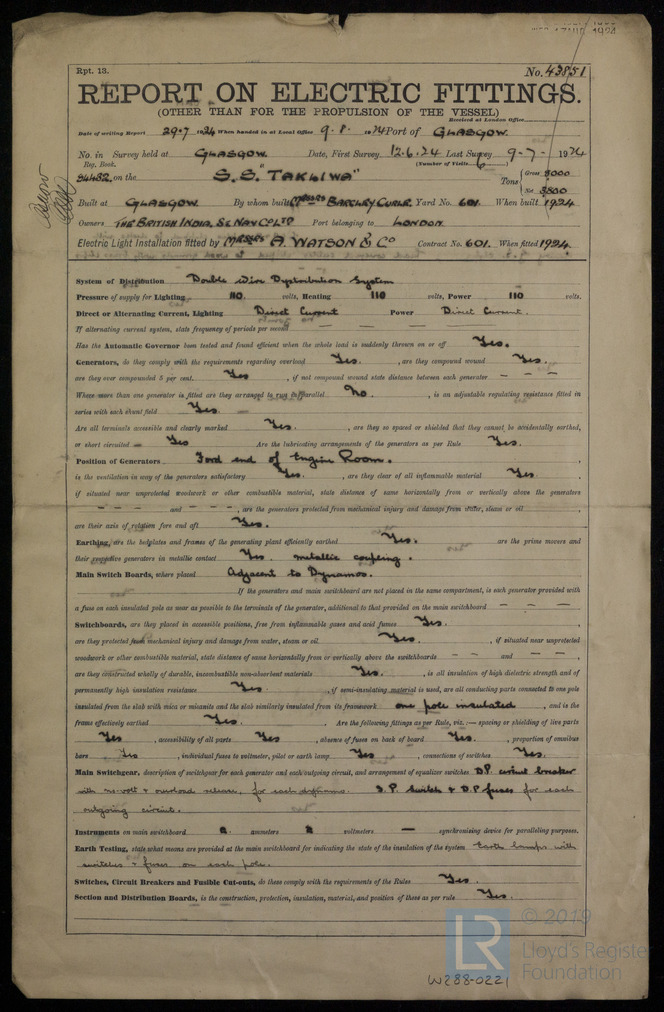 Rpt. 13.
No. 43851
REPORT ON ELECTRIC FITTINGS.
(OTHER THAN FOR THE PROPULSION OF THE VESSEL)
Received at London Office
Date of writing Report 29.7.24 When handed in at Local Office 9.8.1924 Port of GLASGOW.
No. in Survey held at GLASGOW. Date, First Survey 12.6.24 Last Survey 9-7-1924
Reg. Book. (Number of Visits 6)
84482 on the S.S. TAKLIWA" Tons Gross 8000
Net 3800
Built at GLASGOW. By whom built MESSRS BARCLEY CURLE. Yard No. 601. When built 1924
Owners THE BRITISH INDIA. S. NAV Co LTD Port belonging to LONDON.
Electric Light Installation fitted by MESSRS A. WATSON & Co Contract No. 601. When fitted 1924.
System of Distribution Double Wire Dystribution System
Pressure of supply for Lighting 110 volts, Heating 110 volts, Power 110 volts.
Direct or Alternating Current, Lighting Direct Current Power Direct Current.
If alternating current system, state frequency of periods per second — — —
Has the Automatic Governor been tested and found efficient when the whole load is suddenly thrown on or off Yes.
Generators, do they comply with the requirements regarding overload Yes. , are they compound wound Yes.
are they over compounded 5 per cent. Yes , if not compound wound state distance between each generator — — —
Where more than one generator is fitted are they arranged to run in parallel No. , is an adjustable regulating resistance fitted in
series with each shunt field Yes.
Are all terminals accessible and clearly marked Yes. , are they so spaced or shielded that they cannot be accidentally earthed,
or short circuited Yes Are the lubricating arrangements of the generators as per Rule Yes.
Position of Generators Ford end of Engine Room.
is the ventilation in way of the generators satisfactory Yes. , are they clear of all inflammable material Yes.
if situated near unprotected woodwork or other combustible material, state distance of same horizontally from or vertically above the generators
— — — and — — — , are the generators protected from mechanical injury and damage from water, steam or oil
are their axis of rotation fore and aft Yes.
Earthing, are the bedplates and frames of the generating plant efficiently earthed Yes. are the prime movers and
their respective generators in metallic contact Yes. metallic coupling.
Main Switch Boards, where placed Adjacent to Dynamos.
If the generators and main switchboard are not placed in the same compartment, is each generator provided with
a fuse on each insulated pole as near as possible to the terminals of the generator, additional to that provided on the main switchboard — — —
Switchboards, are they placed in accessible positions, free from inflammable gases and acid fumes Yes.
are they protected from mechanical injury and damage from water, steam or oil Yes. , if situated near unprotected
woodwork or other combustible material, state distance of same horizontally from or vertically above the switchboards — — and — —
are they constructed wholly of durable, incombustible non-absorbent materials Yes. , is all insulation of high dielectric strength and of
permanently high insulation resistance Yes , if semi-insulating material is used, are all conducting parts connected to one pole
insulated from the slab with mica or micanite and the slab similarly insulated from its framework one pole insulated , and is the
frame effectively earthed Yes. Are the following fittings as per Rule, viz.:— spacing or shielding of live parts
Yes , accessibility of all parts Yes , absence of fuses on back of board Yes. , proportion of omnibus
bars Yes , individual fuses to voltmeter, pilot or earth lamp Yes , connections of switches Yes.
Main Switchgear, description of switchgear for each generator and each outgoing circuit, and arrangement of equalizer switches D.P. circuit breaker
with no-volt & overload release, for each dynamo. D.P. Switch & D.P fuses for each
outgoing circuit.
Instruments on main switchboard 2 ammeters 2 voltmeters — synchronising device for paralleling purposes.
Earth Testing, state what means are provided at the main switchboard for indicating the state of the insulation of the system Earth lamps with
switches & fuses on each pole.
Switches, Circuit Breakers and Fusible Cut-outs, do these comply with the requirements of the Rules Yes.
Section and Distribution Boards, is the construction, protection, insulation, material, and position of these as per rule Yes.
© 2019
LR
Lloyd's Register
Foundation
W288-0221